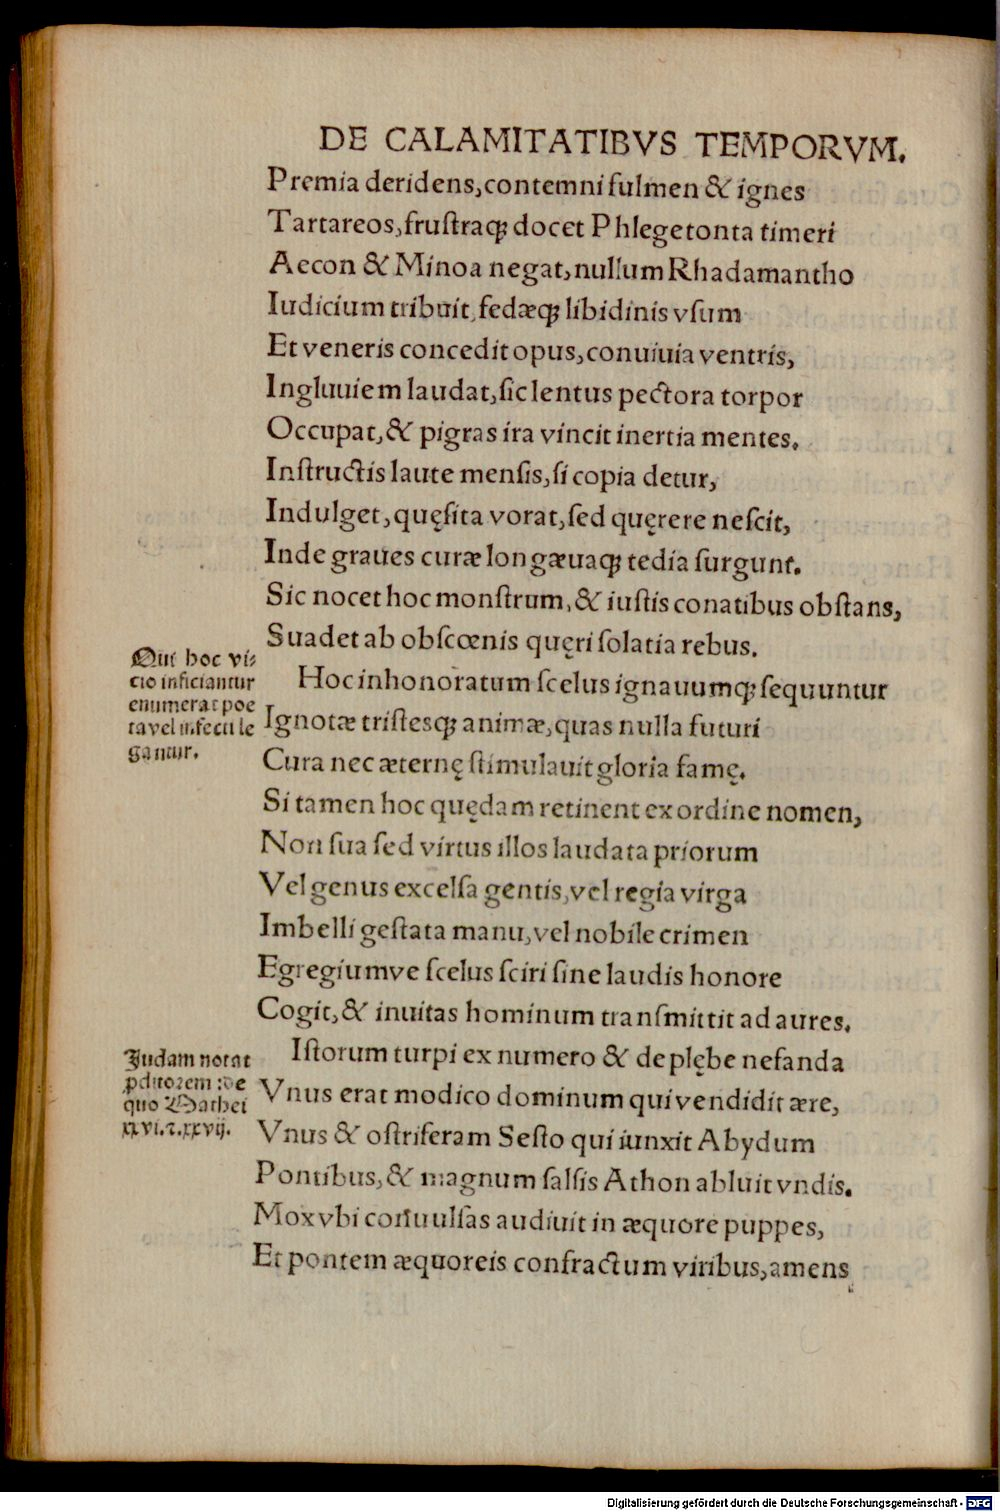 DE CALAMITATIBVS TEMPORVM.
Premia deridens,contemni fulmen & ignes
Tartareos,fruſtraqꝫ docet Phlegetonta timeri
Aecon & Minoa negat,nullum Rhadamantho
Iudicium tribuit,fedæqꝫ libidinis vſum
Et veneris concedit opus,conuiuia ventris,
Ingluuiem laudat,ſic lentus pectora torpor
Occupat,& pigras ira vincit inertia mentes.
Inſtructis laute menſis,ſi copia detur,
Indulget,quęſita vorat,ſed quęrere neſcit,
Inde graues curæ longæuaqꝫ tedia ſurgunt.
Sic nocet hoc monſtrum,& iuſtis conatibus obſtans,
Suadet ab obſcœnis quęri ſolatia rebus.
Qui hoc vi⸗
cio inficiantur
enumerat poe
ta vel infecti le
gantur.
Hoc inhonoratum ſcelus ignauumqꝫ ſequuntur
Ignotæ triſtesqꝫ animæ,quas nulla futuri
Cura nec æternę ſtimulauit gloria famę.
Si tamen hoc quędam retinent ex ordine nomen,
Non ſua ſed virtus illos laudata priorum
Vel genus excelſa gentis,vel regia virga
Imbelli geſtata manu,vel nobile crimen
Egregiumve ſcelus ſciri ſine laudis honore
Cogit,& inuitas hominum tranſmittit ad aures.
Judam notat
ꝓditorem :de
quo Mathei
xxvi.⁊.xxvij.
Iſtorum turpi ex numero & de plębe nefanda
Vnus erat modico dominum qui vendidit ære,
Vnus & oſtriferam Seſto qui iunxit Abydum
Pontibus,& magnum ſalſis Athon abluit vndis.
Mox vbi conuulſas audiuit in æquore puppes,
Et pontem æquoreis confractum viribus,amens
Digitalisierung gefördert durch die Deutsche Forschungsgemeinschaft - DFG